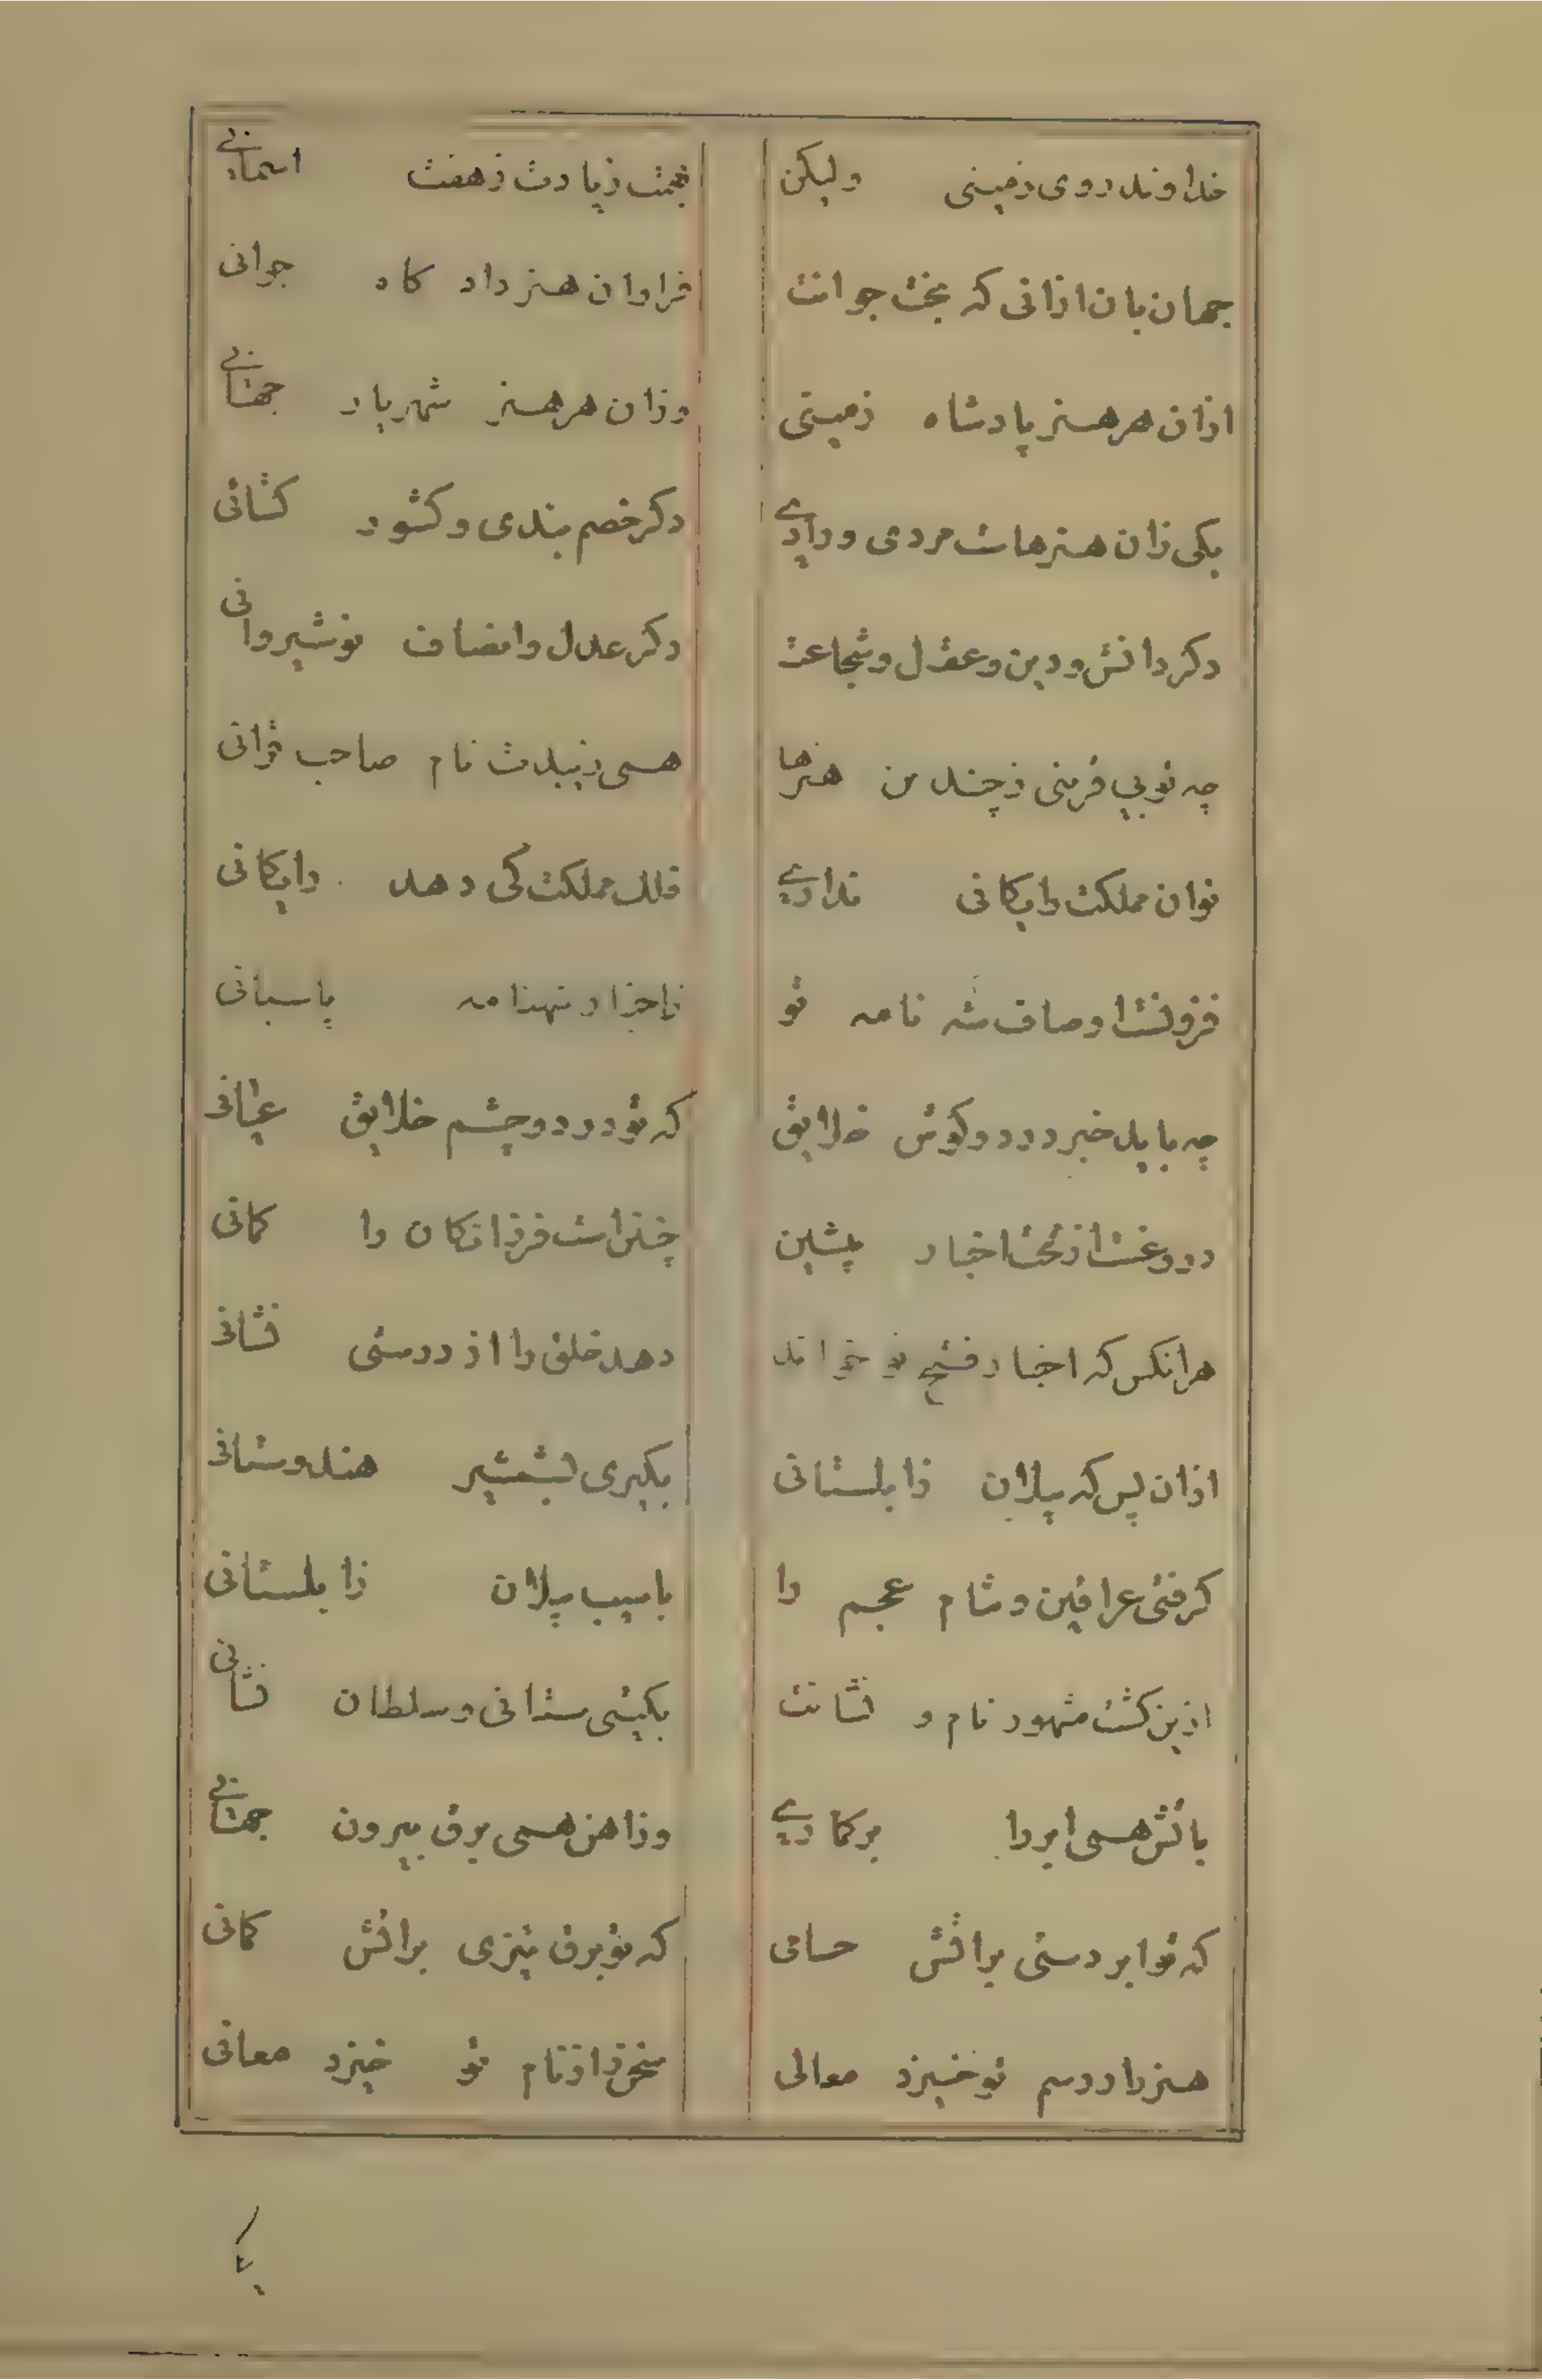 خداوند روی زمینی ولیکن همت زیادت ز هفت اسمانی
جهان بان ازانی که بخت جوانت فراوان هنر داد کاه جوانی
ازان هر هنر پادشاه زمینی وزان هر هنر شهریار جهانی
یکی زان هنرهات مردی و رادی دکر خصم بندی و کشور کشائی
دکر دانش و دین و عقل و شجاعت دکر عدل و انصاف نوشیروانی
چه تو بی قرینی ز چندین هنرها همی زیبدت نام صاحب قرانی
توان مملکت رایکانی نداری فلک مملکت کی دهد رایکانی
فزونست اوصاف شه نامه تو پاسبانی
چه باید خبر در دو کوش خلایق که تو در دو چشم خلایق عیانی
دروغست از تحت اخبار پیشین چنین است فرزانکان را کمانی
هرانکس که اخبار فتح تو خواند دهد خلق را از درستی نشانی
ازان پس که پیلان زابلستانی بکیری بشمشیر هندوستانی
کرفتی عراقین و شام عجم را باسیب پیلان زابلستانی
ازین کشت مشهور نام و نشانت بکیتی ستانی و سلطان نشانی
باتش همی ابر را برکماری وز اهن همی برق بیرون جهانی
که تو ابر دستی براتش حسامی که تو برق تیزی براتش کمانی
هنر را ز رسم تو خیزد معالی سخن را از نام تو خیزد معانی